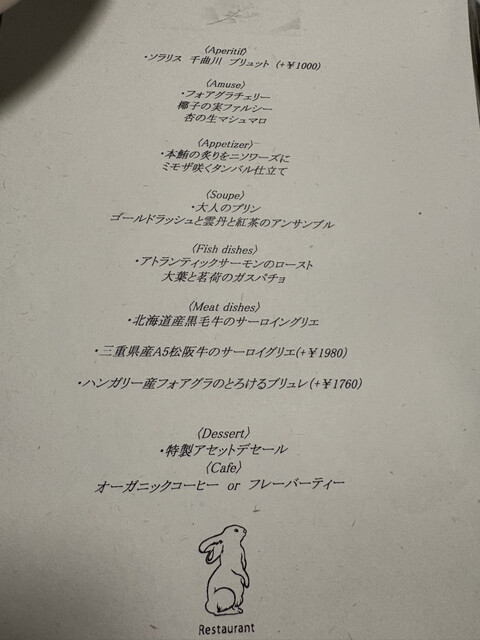 〈Aperitif〉
・ソラリス 千曲川 ブリュット (+￥1000)
〈Amuse〉
・フォアグラチェリー
椰子の実ファルシー
杏の生マシュマロ
〈Appetizer〉
・本鮪の炙りをニソワーズに
ミモザ咲くタンバル仕立て
〈Soupe〉
・大人のプリン
ゴールドラッシュと雲丹と紅茶のアンサンブル
〈Fish dishes〉
・アトランティックサーモンのロースト
大葉と茗荷のガスパチョ
〈Meat dishes〉
・北海道産黒毛牛のサーロイングリエ
・三重県産A5松阪牛のサーロイグリエ(+￥1980)
・ハンガリー産フォアグラのとろけるブリュレ(+￥1760)
〈Dessert〉
・特製アセットデセール
〈Cafe〉
オーガニックコーヒー or フレーバーティー
Restaurant